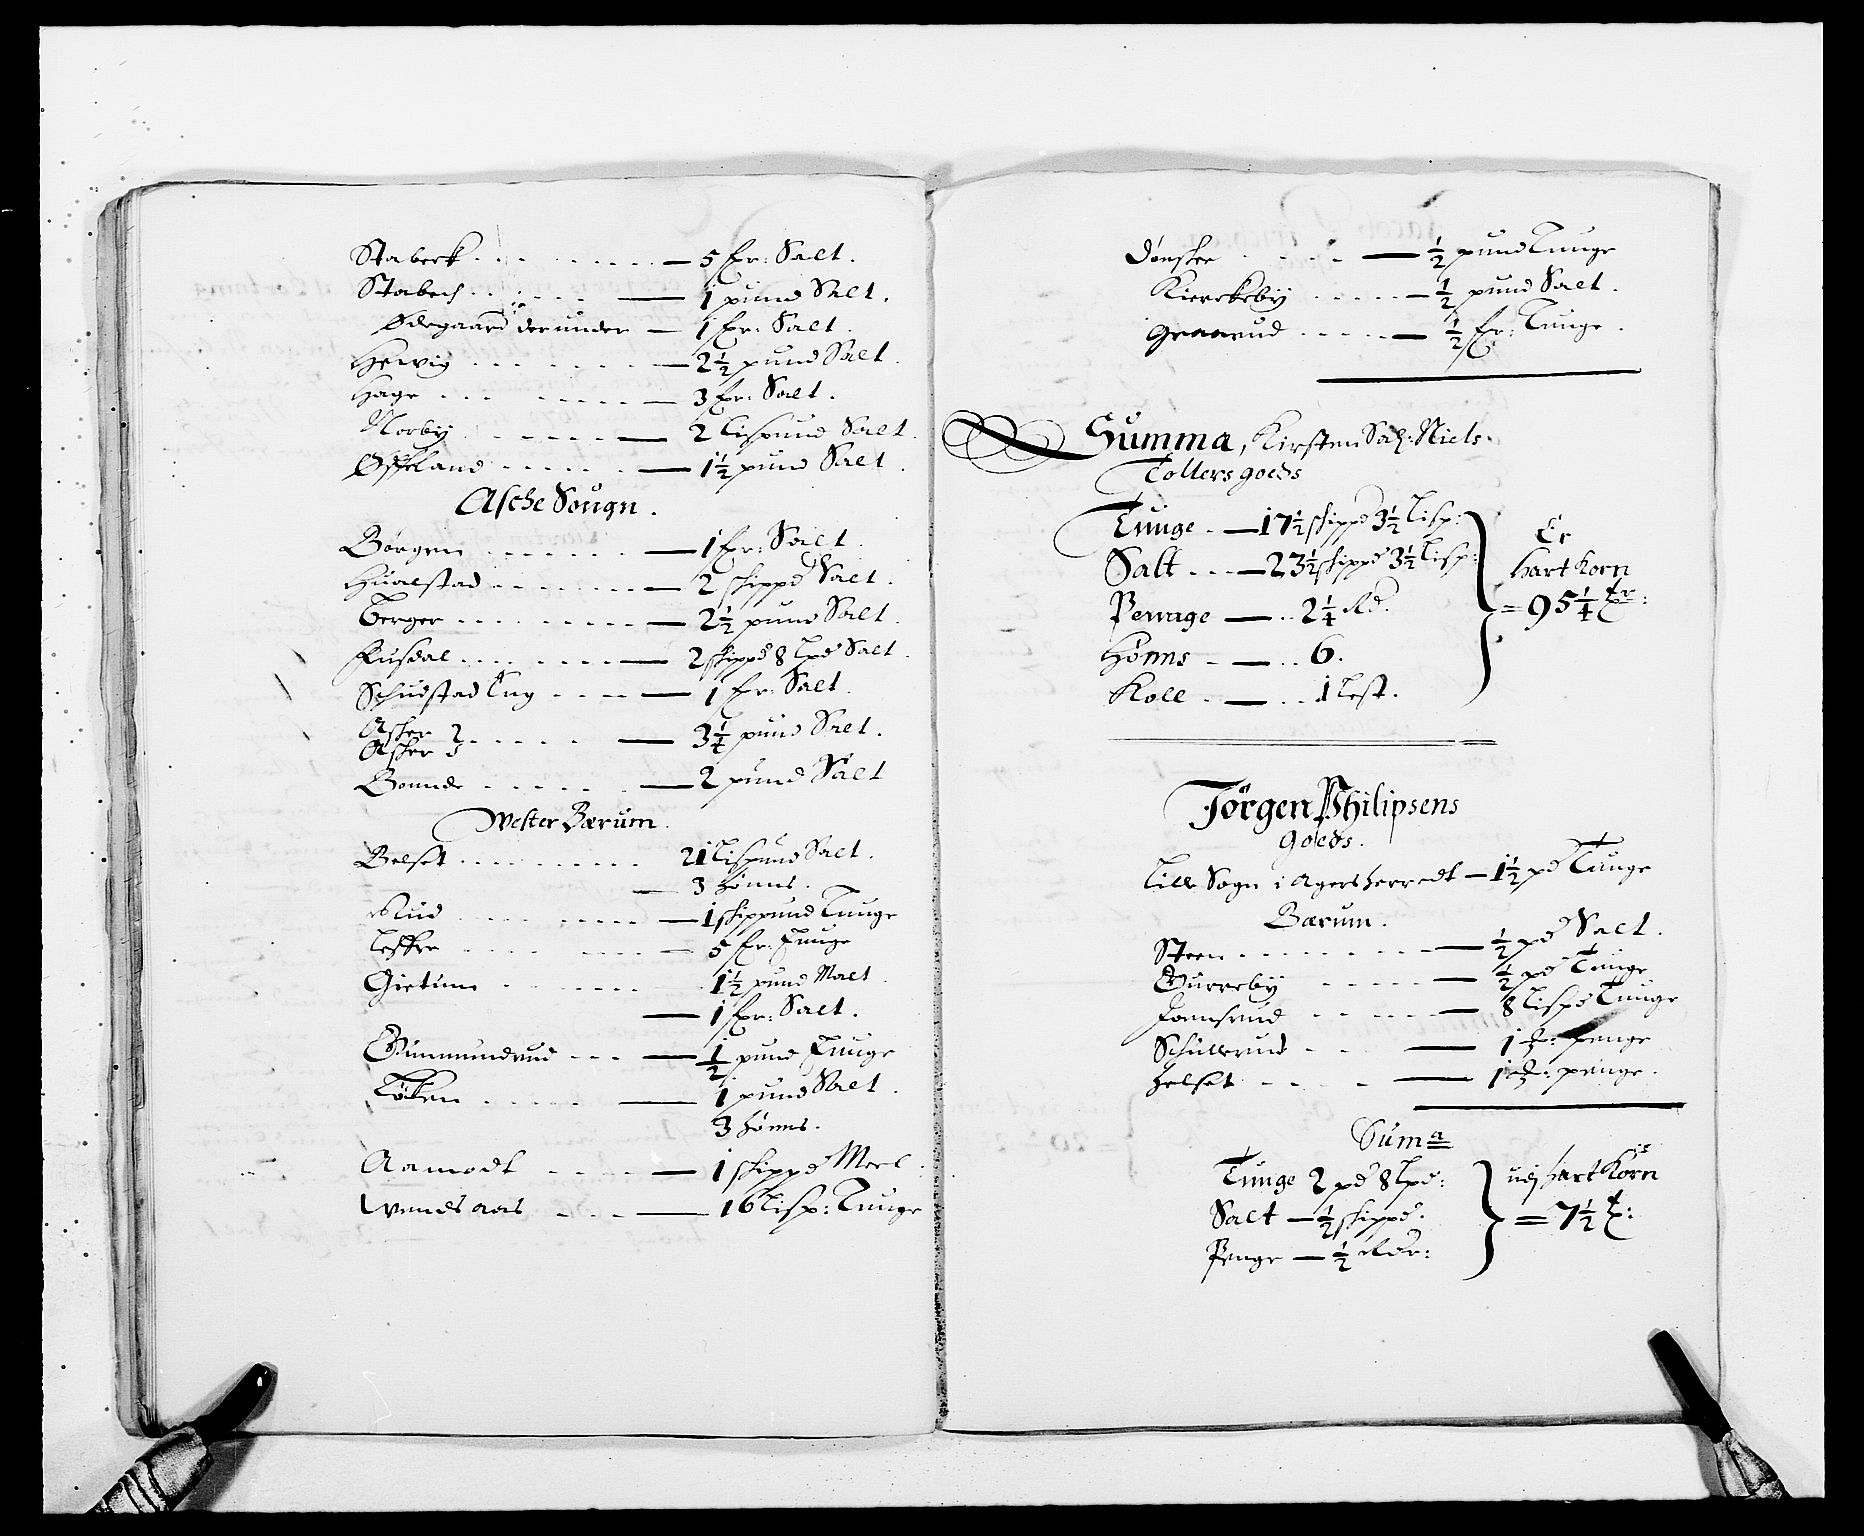 Stabeck - - - - - - - — 5 fr: Salt.
Stabech - - - - - — 1 pund Salt.
Ødegaard der under — 1 fr: Salt.
Herwig - - - - - - — 2½ pund Salt.
Hage - - - - - - — 3 fr: Salt.
Norby - - - - - — 2 Lispund Salt.
Øffeland - - - - - — 1½ pund Salt.
Asche Sougn.
Børgen - - - - - - — 1 fr: Salt.
Hualstad - - - - - - — 2 skippd Salt.
Berger - - - - - - — 2½ pund Salt.
Fusdal - - - - - - — 2 skippd 8 lpd Salt.
Schustad - - - — 1 fr: Salt.
Asker
Asker - - - - - — 3¼ pund Salt.
Bonnde - - - - - — 2 pund Salt
Wester Bærum.
Belset - - - - - - - 21 Lispund Salt.
— 3 Hønns.
Rud - - - - - - — 1 skippund Tunge
Leffre - - - - - - — 5 fr: Tunge
Gietum - - - - - - 1½ pund Malt
— 1 fr: Salt.
Gummundrud - - - — ½ pund Tunge
Tøken - - - - - — 1 pund Salt.
3 Hønns.
Aamodt - - - - — 1 skippd Meel.
Wendsaas - - - — 16 Lisp: Tunge
Dønskee - - - - — ½ pund Tunge
Kierckeby - - - - - — ½ pund Salt.
Graarud - - - - - — ½ fr: Tunge.
Summa, Kirsten Sal: Niels
Tollers goeds
Tunge - — 17½ skippd 3½ Lisp:
Salt - - - — 23½ skippd 3½ Lisp:
Penge — - - 2¼ Rd.
Hønns - — - - 6.
Koll - — - - 1 Lest.
Er
Hart Korn
= 95¼ tr:
Jörgen Philipsens
goeds.
Lille Sogn i Agersherredt — 1½ pd Tunge
Bærum.
Steen - - - - - - - — ½ pd Salt.
Burreby - - - - - — ½ pd Tunge
Jonnsrud - - - - - — 8 Lispd Tunge
Schullerud - - - - — 1 penge
Helset - - - - — 1 penge.
Suma
Tunge 2 pd 8 lpd:
Salt — ½ skippd.
Penge — ½ Rdr:
udj Hart Korn
= 7½ t: